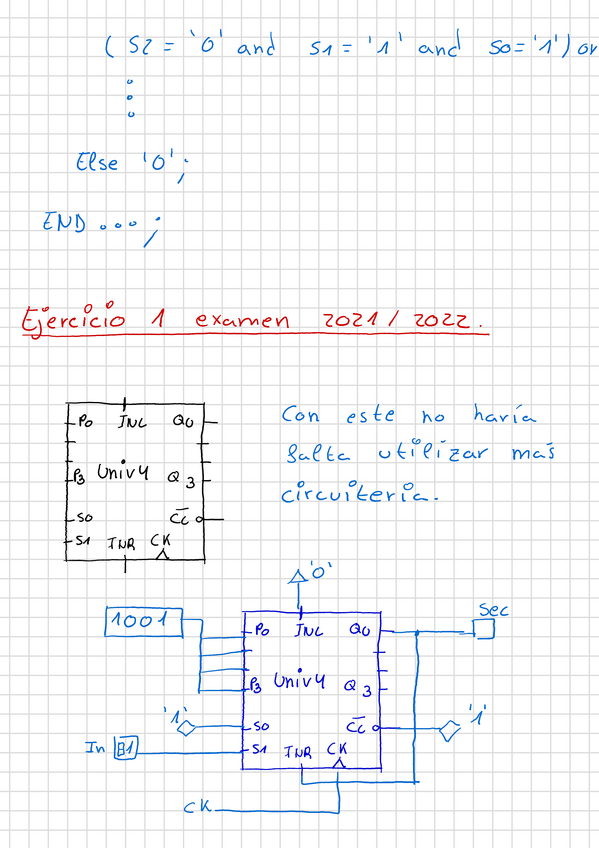 ( S2 = '0' and S1 = '1' and S0 = '1') or
Else '0';
END ...;
Ejercicio 1 examen 2021 / 2022.
P0 INL Q0
P3 Univ4 Q3
S0 CC
S1 INR CK
Con este no haría
falta utilizar más
circuitería.
'0'
1001
P0 INL Q0
Sec
P3 Univ4 Q3
'1'
S0 CC
'1'
In B1
S1 INR CK
CK